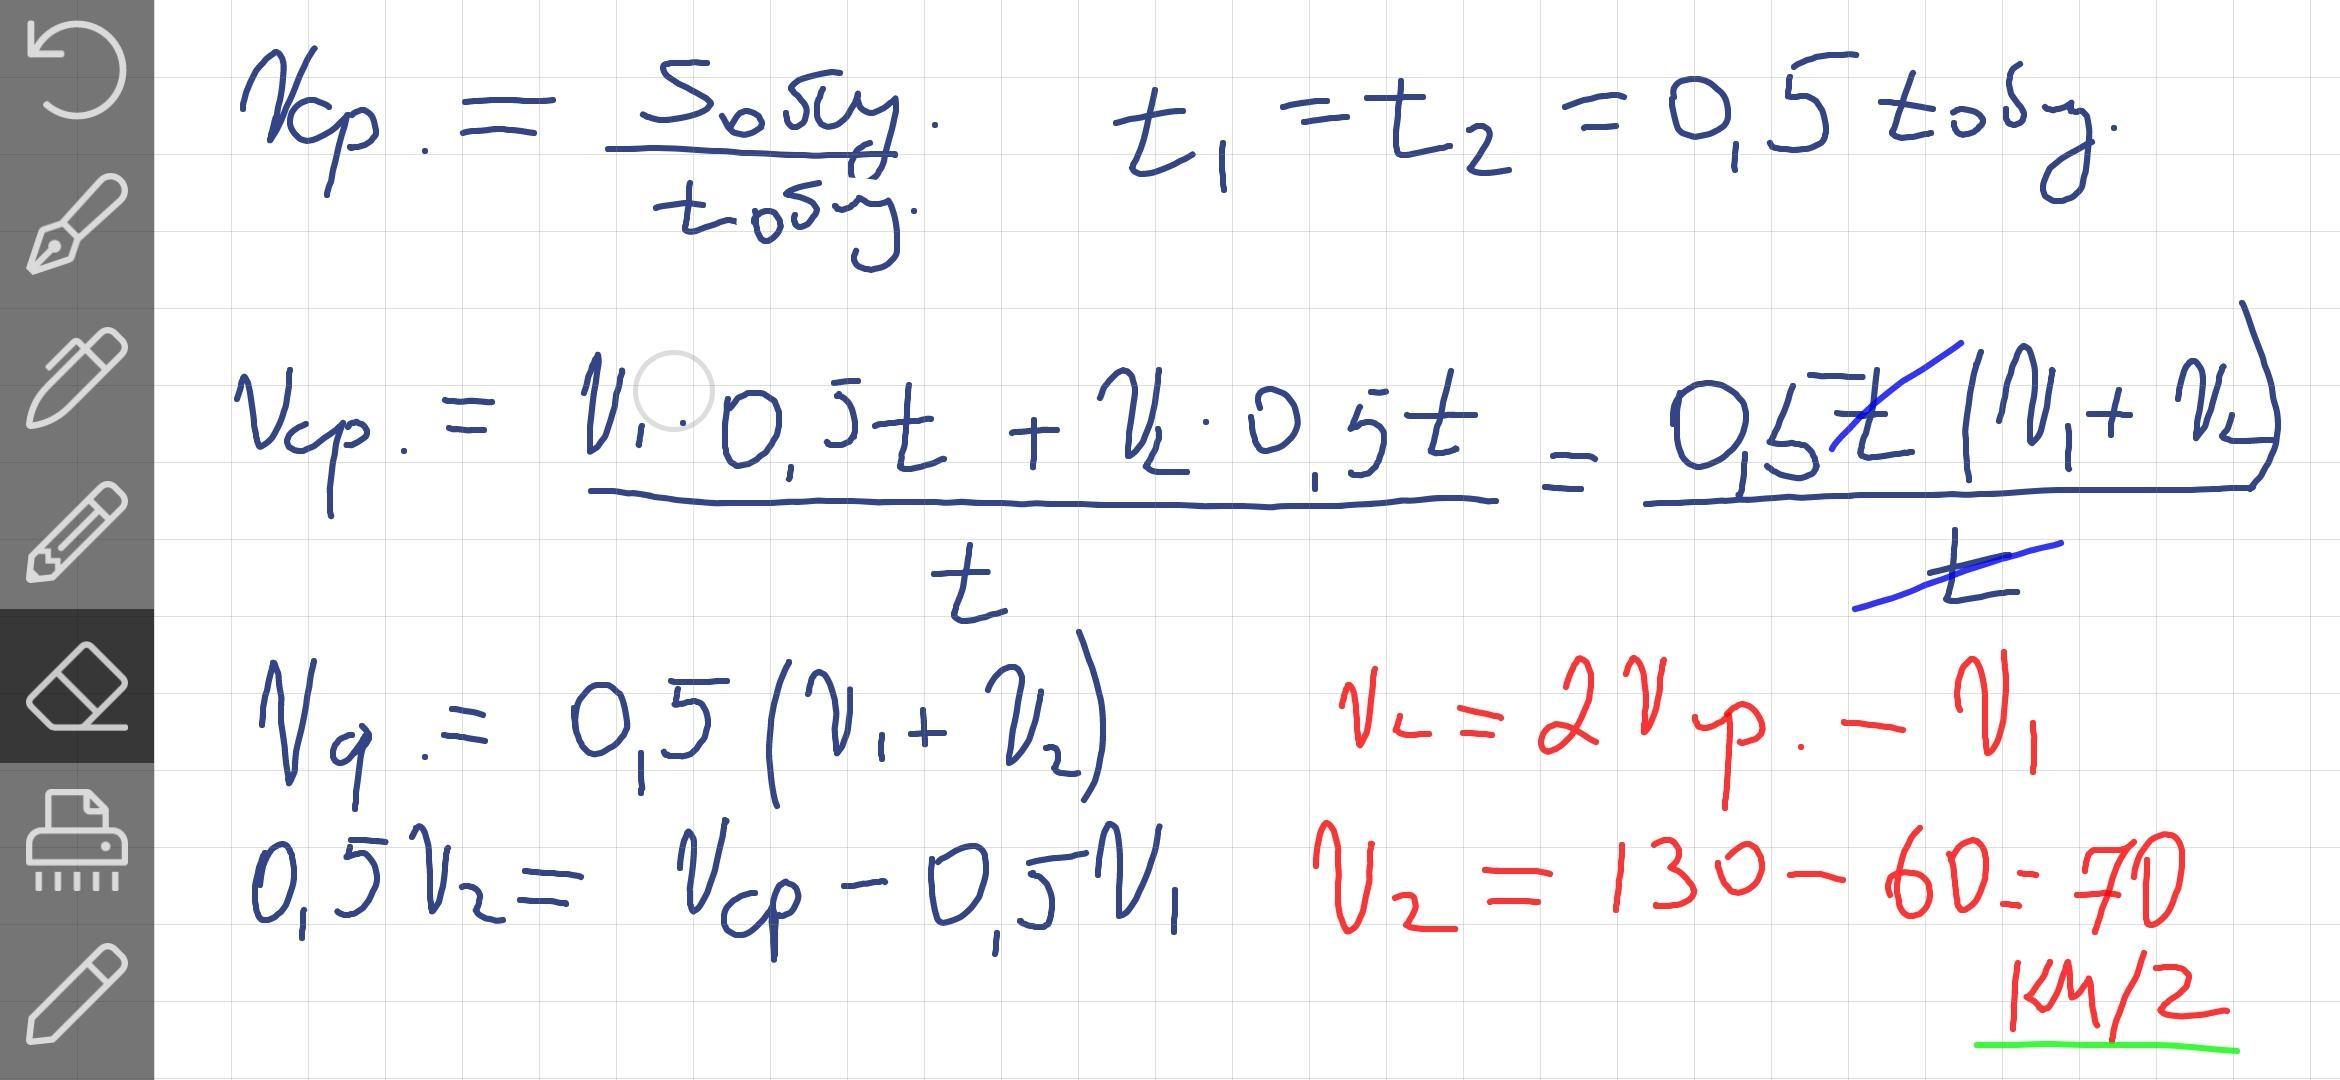 Vср. = Sобщ. / tобщ. t₁ = t₂ = 0,5 tобщ.
Vср. = (V₁ · 0,5t + V₂ · 0,5t) / t = 0,5t (V₁ + V₂) / t
Vср. = 0,5 (V₁ + V₂) V₂ = 2Vср. - V₁
0,5V₂ = Vср - 0,5V₁ V₂ = 130 - 60 = 70
км/г